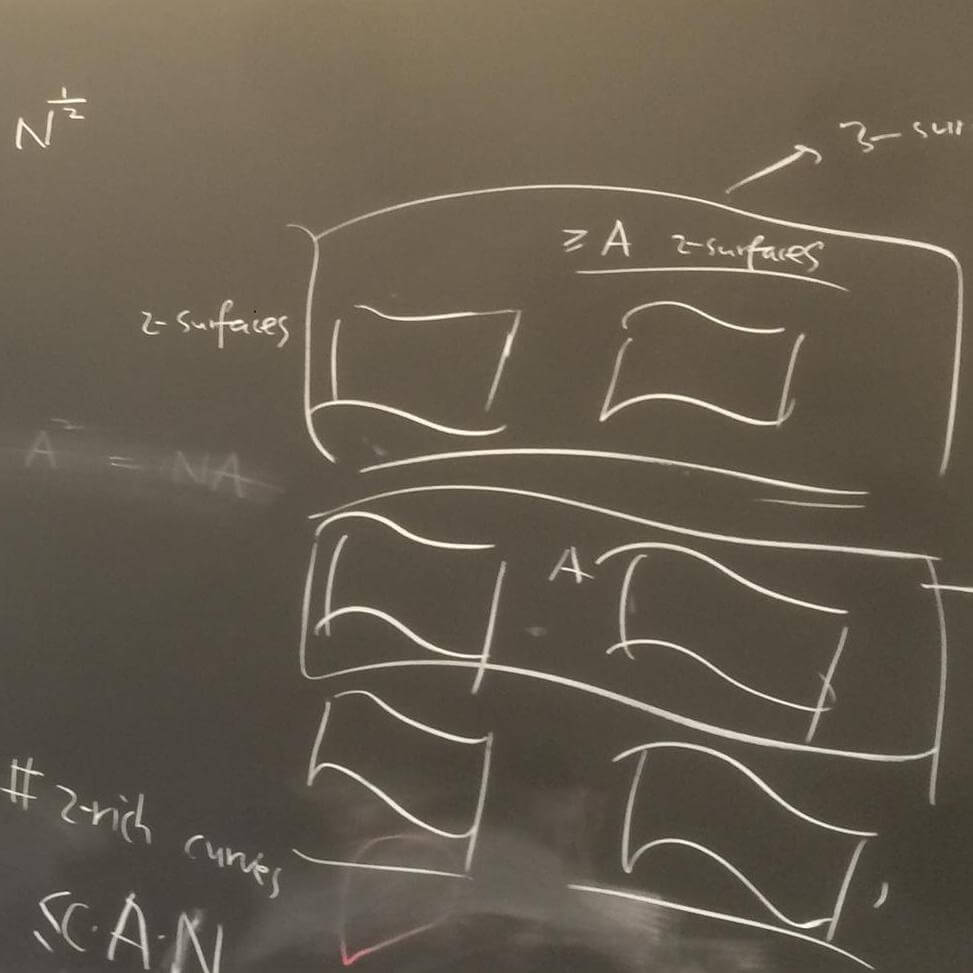 N^{1/2}
3-
≥ A 2-surfaces
2-surfaces
= NA
A
# 2-rich curves
≤ C·A·N